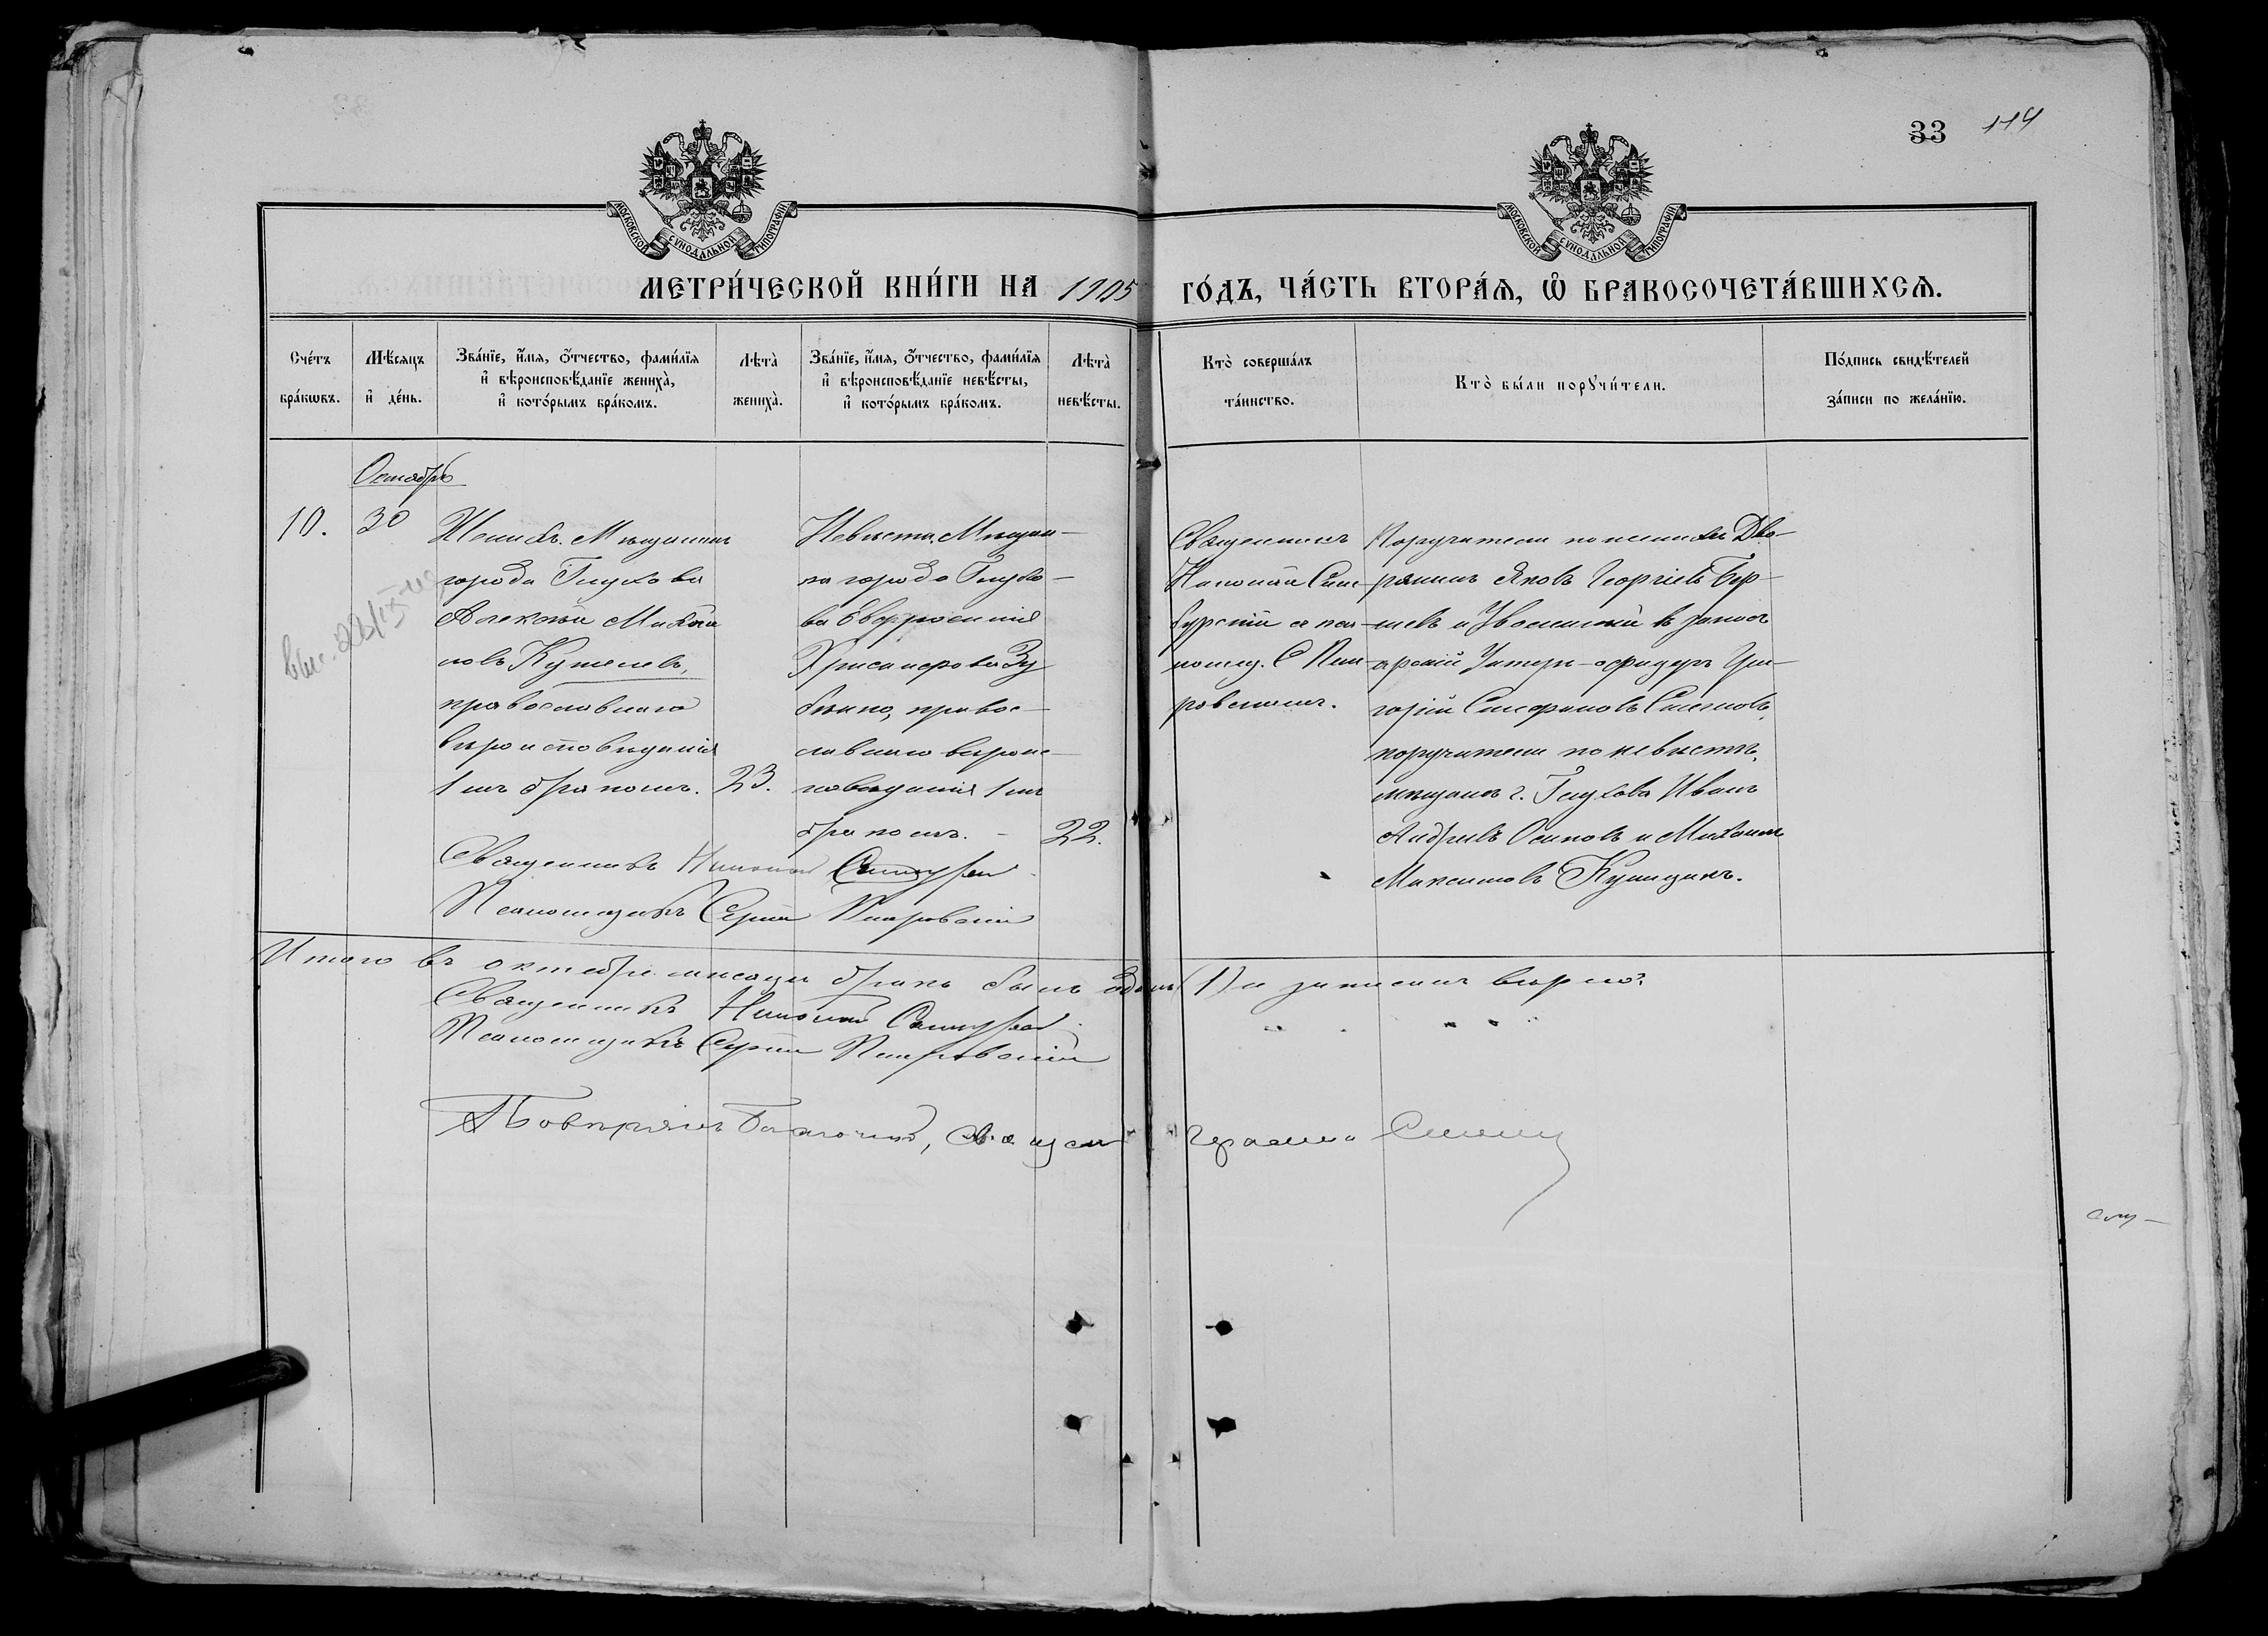 33 114
МОСКОВСКОЙ СУНОДАЛЬНОЙ ТИПОГРАФІИ
МОСКОВСКОЙ СУНОДАЛЬНОЙ ТИПОГРАФІИ
МЕТРИ́ЧЕСКОЙ КНИ́ГИ НА 1905 ГО́ДЪ, ЧА́СТЬ ВТОРА́Я, Ѡ БРАКОСОЧЕТА́ВШИХСѦ.
Сче́тъ бра́кѡвъ.
Мѣ́сяцъ и҆ де́нь.
Зва́нїе, и҆́мя, ѻ҆́тчество, фами́лїя и҆ вѣроисповѣ́данїе жениха̀, и҆ кото́рымъ бра́комъ.
Лѣта̀ жениха̀.
Зва́нїе, и҆́мя, ѻ҆́тчество, фами́лїя и҆ вѣроисповѣ́данїе невѣ́сты, и҆ кото́рымъ бра́комъ.
Лѣта̀ невѣ́сты.
Кто̀ соверша́лъ та́инство.
Кто̀ бы́ли порꙋчи́тели.
По́дпись свидѣ́телей за́писи по жела́нїю.
Октябрь
10. 30
Женихъ. Мѣщанинъ
города Глухова
Алексѣй Михаи
ловъ Кушелевъ,
православнаго
вѣроисповѣданія
1мъ бракомъ. 23.
Невѣста. Мѣщан-
ка города Глухо-
ва Евфросинія
Хрисанфова Зу
бенко, правос-
лавнаго вѣроис-
повѣданія 1мъ
бракомъ. - 22.
Священникъ
Николай
псаломщ. С Пет
ровскимъ.
Поручители по женихѣ Дво-
рянинъ Яковъ Георгіевъ
и въ запасѣ
Унтеръ-офицеръ Гри-
горій Стефановъ
поручители по невѣстѣ,
мѣщане г. Глухова Иванъ
Андреевъ Осиповъ и Михаилъ
Максимовъ
Священникъ Николай
Псаломщикъ Сергій Петровскій
Итого въ октябрѣ мѣсяцѣ бракъ былъ одинъ (1) и записанъ вѣрно:
Священникъ Николай
Псаломщикъ Сергій Петровскій